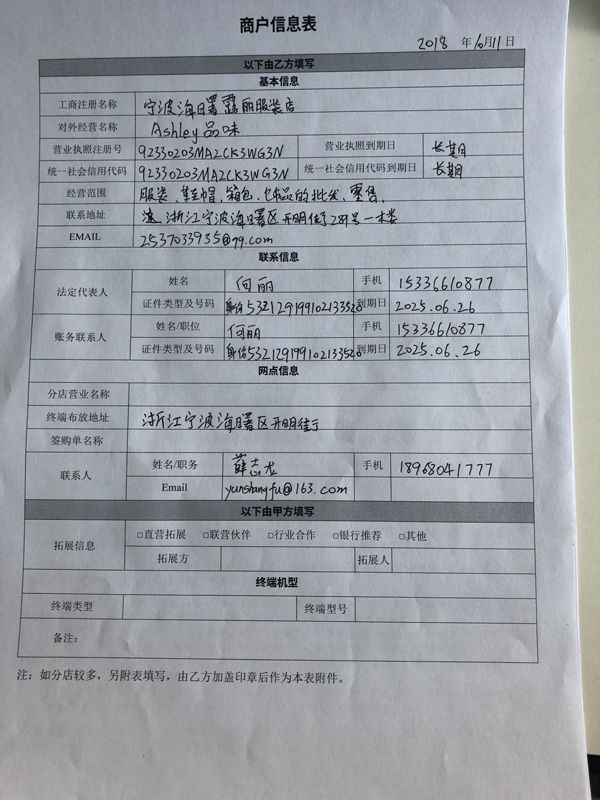 商户信息表
2018 年 10月 11 日
以下由乙方填写
基本信息
工商注册名称 宁波海曙露丽服装店
对外经营名称 Ashley品味
营业执照注册号 92330203MA2CK3WG3N 营业执照到期日 长期
统一社会信用代码 92330203MA2CK3WG3N 统一社会信用代码到期日 长期
经营范围 服装、鞋帽、箱包、饰品的批发、零售、
联系地址 浙江宁波海曙区开明街289号一楼
EMAIL 2537033935@qq.com
联系信息
法定代表人 姓名 何丽 手机 15336610877
证件类型及号码 身份 532129199102133526 到期日 2025.06.26
账务联系人 姓名/职位 何丽 手机 15336610877
证件类型及号码 身份 532129199102133526 到期日 2025.06.26
网点信息
分店营业名称
终端布放地址 浙江宁波海曙区开明街
签购单名称
联系人 姓名/职务 薛志龙 手机 18968041777
Email yunshangfu@163.com
以下由甲方填写
拓展信息 □直营拓展 □联营伙伴 □行业合作 □银行推荐 □其他
拓展方 拓展人
终端机型
终端类型 终端型号
备注:
注:如分店较多,另附表填写,由乙方加盖印章后作为本表附件。